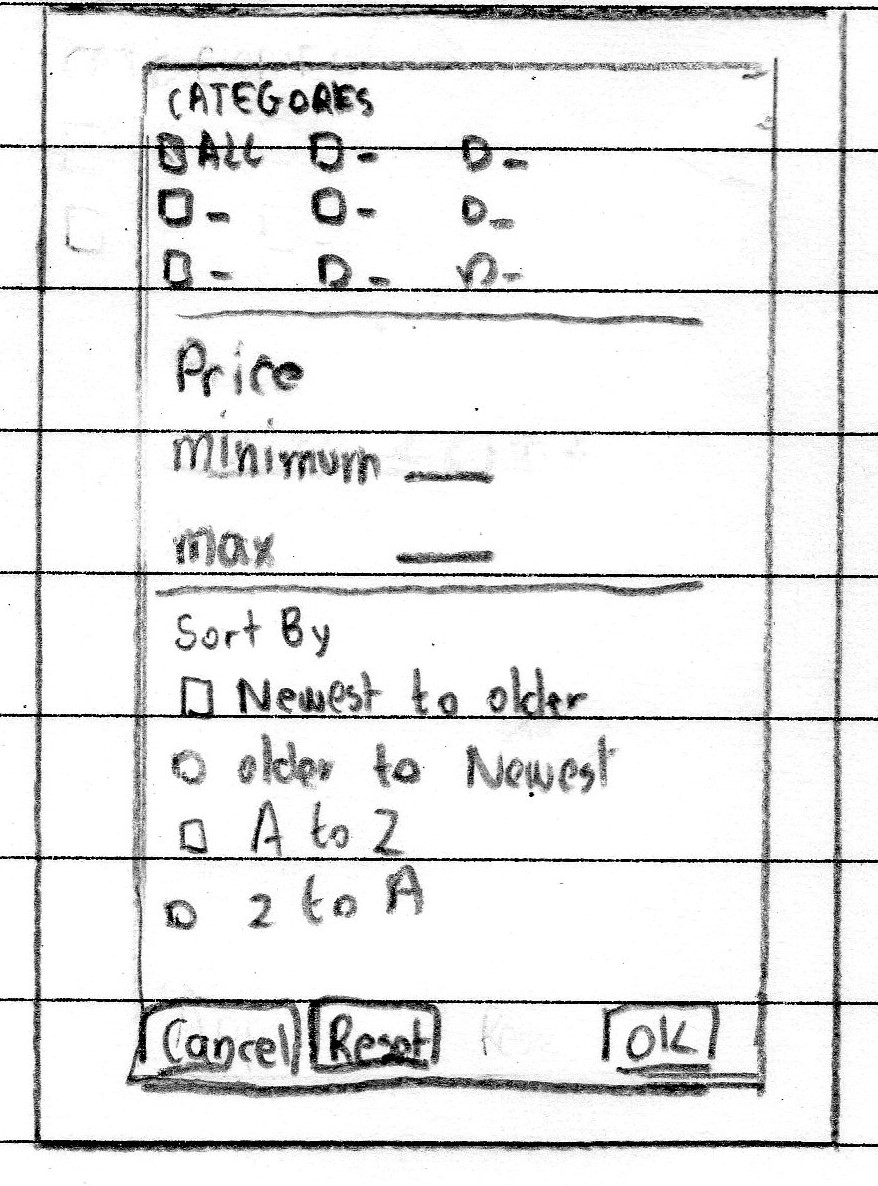 CATEGORES
ALL
Price
Minimum
max
Sort By
Newest to older
older to Newest
A to Z
Z to A
Cancel Reset OK